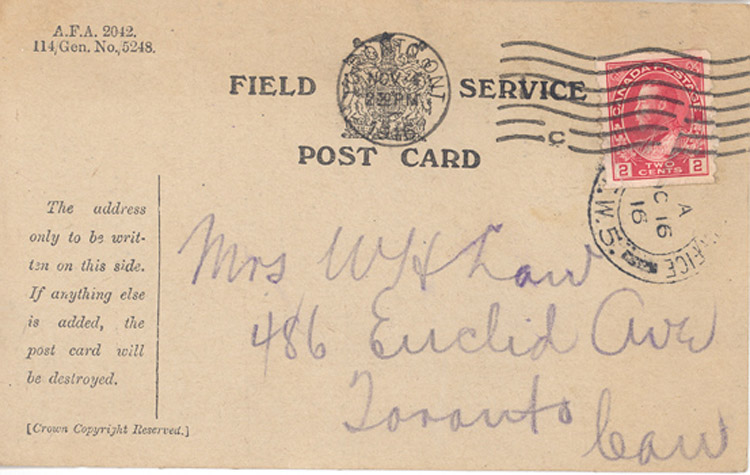 A.F.A. 2042.
114/Gen. No./5248.
FIELD SERVICE
POST CARD
TORONTO, ONT
NOV 4
PM
1916
CANADA POSTAGE
2 TWO CENTS 2
C
A
OC 16
16
FICE
W.5.
The address
only to be writ-
ten on this side.
If anything else
is added, the
post card will
be destroyed.
[Crown Copyright Reserved.]
Mrs W H Law
486 Euclid Ave
Toronto
Can